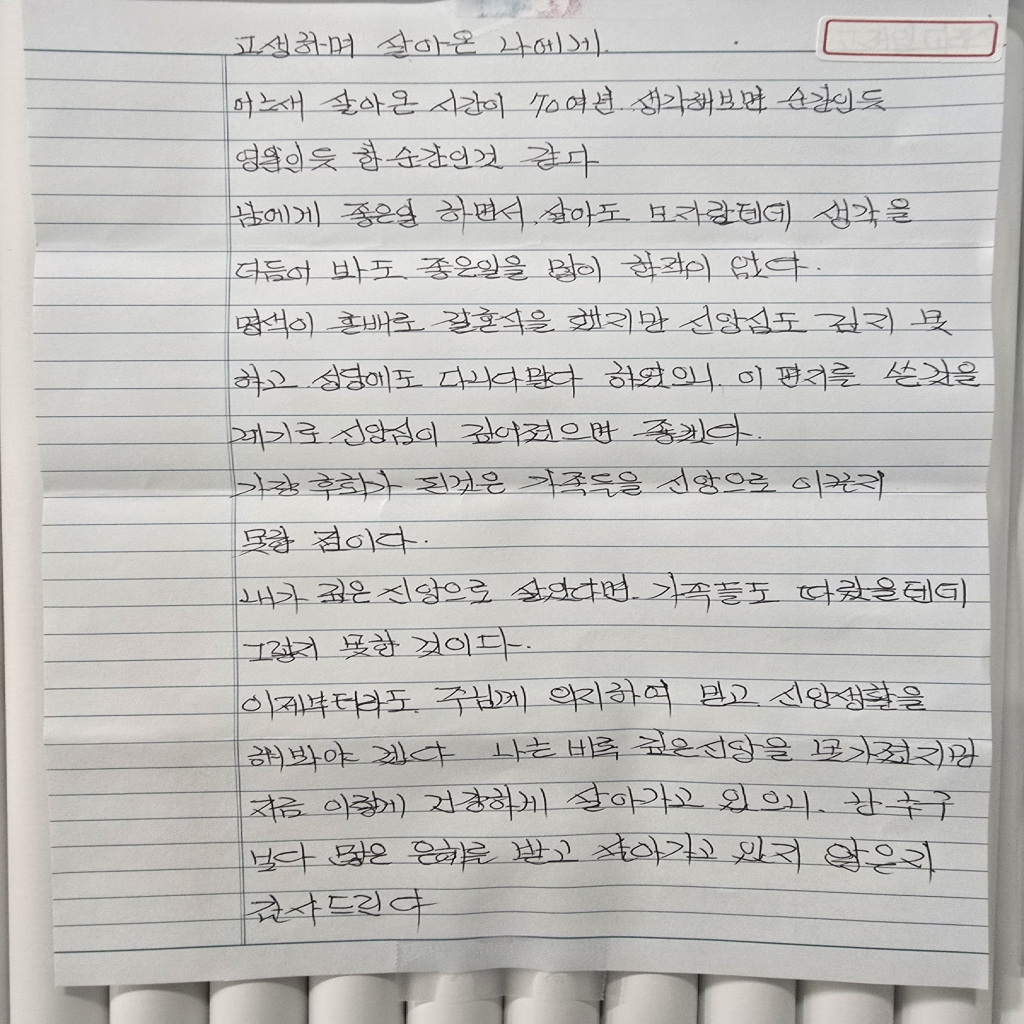 고생하며 살아온 나에게.
어느새 살아온 시간이 70여년. 생각해보면 순간인듯
영원인듯 한 순간인것 같다
남에게 좋은일 하면서 살아도 모자랄텐데 생각을
더듬어 바도 좋은일을 많이 한적이 없다.
명색이 혼배로 결혼식을 했지만 신앙심도 깊지 못
하고 성당에도 다니다말다 하였으니. 이 편지를 쓴것을
계기로 신앙심이 깊어졌으면 좋겠다.
가장 후회가 된것은 가족들을 신앙으로 이끌지
못한 점이다.
내가 깊은 신앙으로 살았다면 가족들도 따랐을텐데
그렇지 못한 것이다.
이제부터라도 주님께 의지하여 믿고 신앙생활을
해봐야 겠다 나는 비록 깊은신앙을 못가졌지만
지금 이렇게 건강하게 살아가고 있으니. 한 구구
보다 많은 은혜를 받고 살아가고 있지 않은지
감사드린다